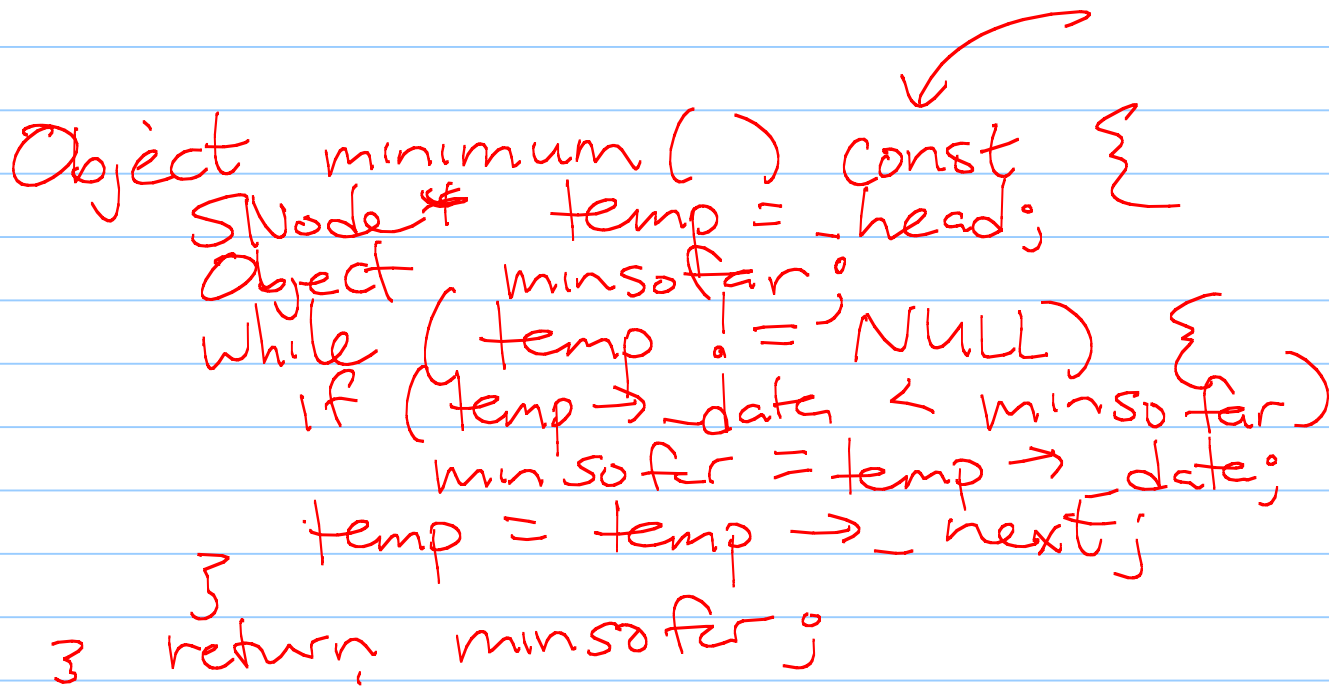 Object minimum() const {
SNode* temp = _head;
Object minsofar;
while (temp != NULL) {
if (temp→_data < minsofar)
minsofar = temp→_data;
temp = temp→_next;
}
} return minsofar;